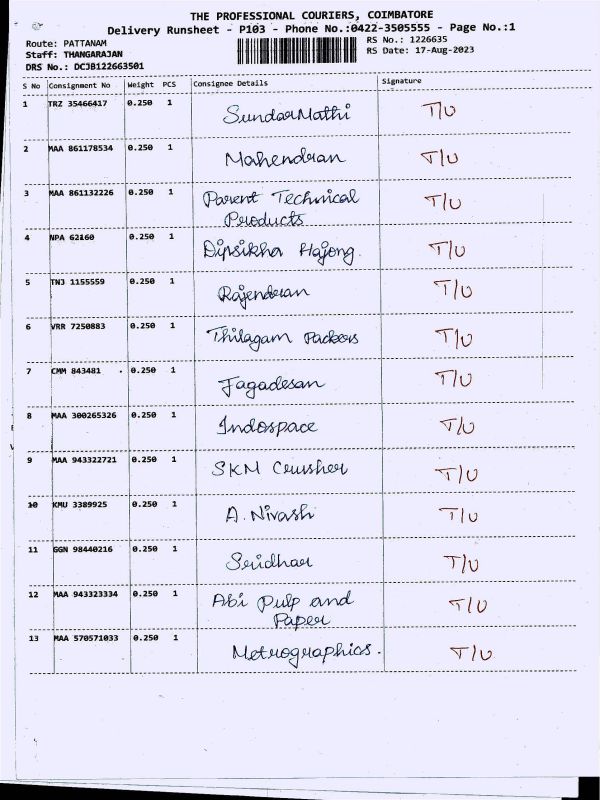 THE PROFESSIONAL COURIERS, COIMBATORE
Delivery Runsheet - P103 - Phone No.:0422-3505555 - Page No.:1
Route: PATTANAM RS No.: 1226635
Staff: THANGARAJAN RS Date: 17-Aug-2023
DRS No.: DCJB122663501
S No Consignment No Weight PCS Consignee Details Signature
1 TRZ 35466417 0.250 1 SundarMathi T/U
2 MAA 861178534 0.250 1 Mahendran T/U
3 MAA 861132226 0.250 1 Parent Technical T/U
Products
4 NPA 62160 0.250 1 Dipsikha Hajong. T/U
5 TNJ 1155559 0.250 1 Rajendran T/U
6 VRR 7250883 0.250 1 Thilagam Packers T/U
7 CMM 843481 0.250 1 Jagadesan T/U
8 MAA 300265326 0.250 1 Indospace T/U
9 MAA 943322721 0.250 1 SKM Crusher T/U
10 KMU 3389925 0.250 1 A. Nivash T/U
11 GGN 98440216 0.250 1 Sridhar T/U
12 MAA 943323334 0.250 1 Abi Pulp and T/U
Paper
13 MAA 570571033 0.250 1 Metrographics. T/U